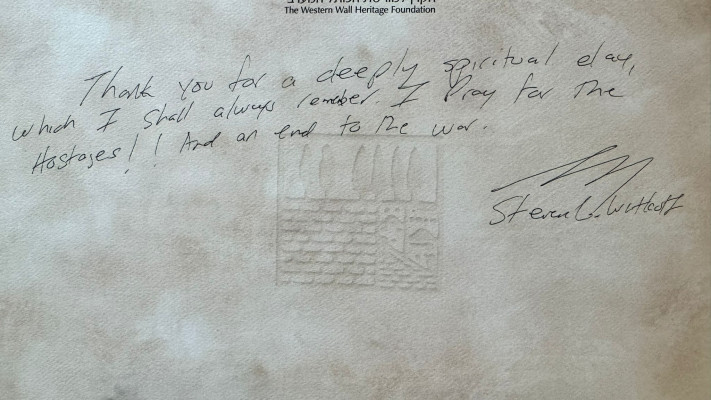 The Western Wall Heritage Foundation
Thank you for a deeply spiritual day,
which I shall always remember. I Pray for The
Hostages!! And an end to The war.
Steven C. Witkoff